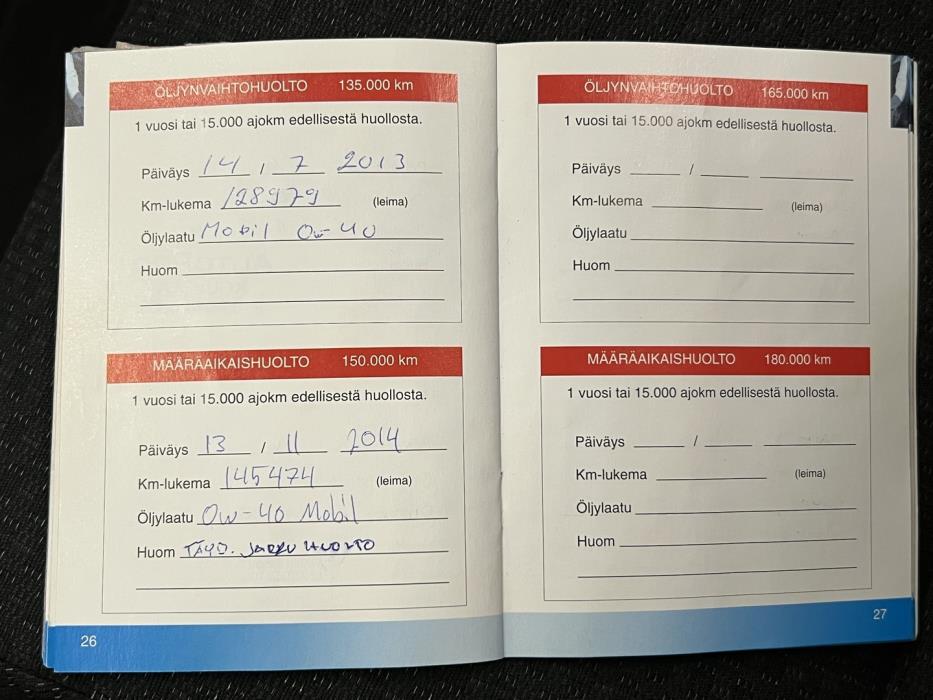 ÖLJYNVAIHTOHUOLTO 135.000 km
1 vuosi tai 15.000 ajokm edellisestä huollosta.
Päiväys 14 / 7 2013
Km-lukema 128979 (leima)
Öljylaatu Mobil 0w-40
Huom
MÄÄRÄAIKAISHUOLTO 150.000 km
1 vuosi tai 15.000 ajokm edellisestä huollosta.
Päiväys 13 / 11 2014
Km-lukema 145474 (leima)
Öljylaatu 0w-40 Mobil
Huom TÄYD. JARRUHUOLTO
26
ÖLJYNVAIHTOHUOLTO 165.000 km
1 vuosi tai 15.000 ajokm edellisestä huollosta.
Päiväys /
Km-lukema (leima)
Öljylaatu
Huom
MÄÄRÄAIKAISHUOLTO 180.000 km
1 vuosi tai 15.000 ajokm edellisestä huollosta.
Päiväys /
Km-lukema (leima)
Öljylaatu
Huom
27